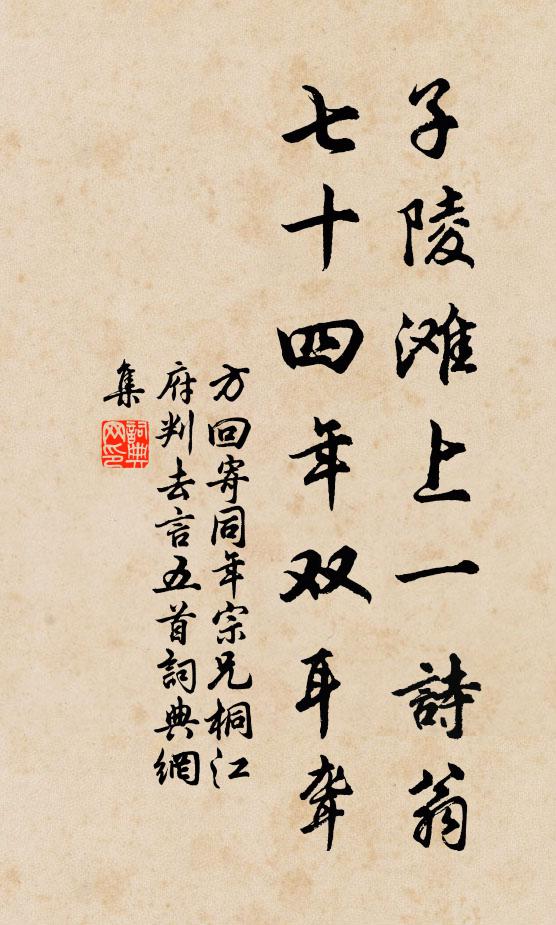 子陵滩上一詩翁
七十四年双耳聋
方回寄同年宗兄桐江
府判去言五首詞典網
集
詞典
网印